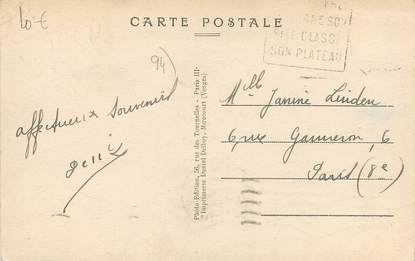 10€
CARTE POSTALE
SITE CLASSÉ
SON PLATEAU
94)
affectueux souvenirs
Photo-Édition, 56, rue des Tournelles - Paris-III·
Imprimerie Daniel Delboy, Mirecourt (Vosges)
Mlle Janine Linden
6 rue Ganneron, 6
Paris (8e)